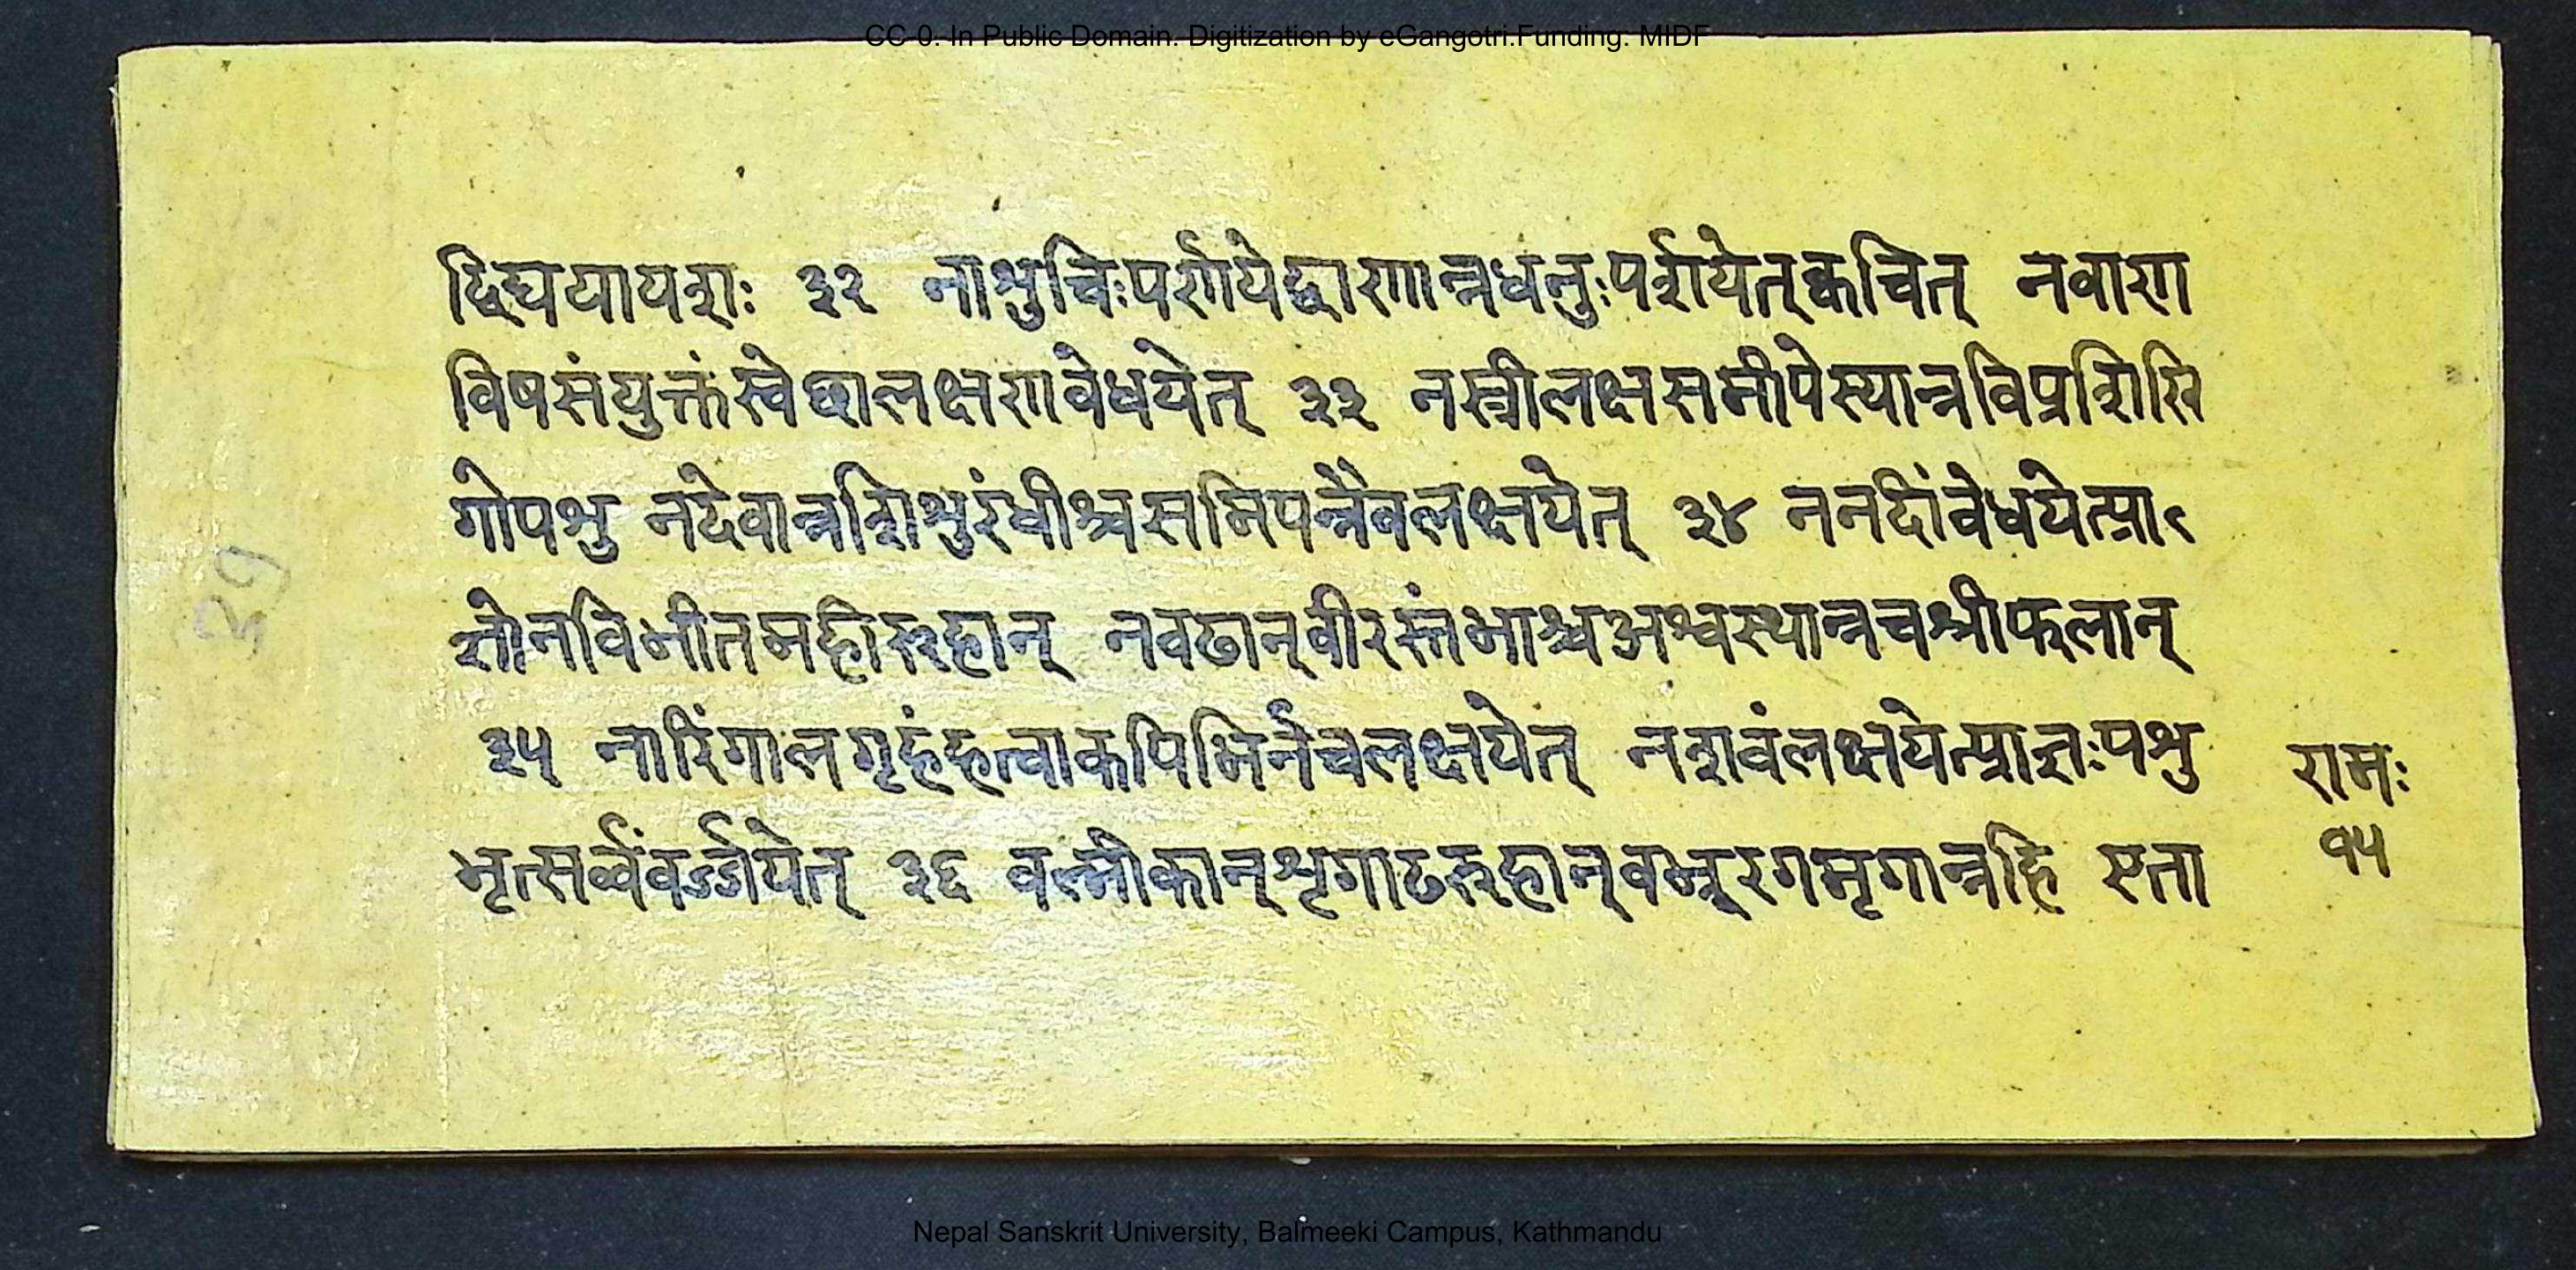 CC-0. In Public Domain. Digitization by eGangotri.Funding. MIDF
द्विघयायशः ३२ नाश्रुचिःपर्शयेद्वाणान्नधनुःपर्शयेत्क्वचित् नवाण
विषसंयुक्तंस्वेछालक्षणवेधयेत् ३३ नस्त्रीलक्षसमीपेस्यान्नविप्रशिसि
गोपश्रु नदेवान्नशिश्रुरंधीश्चसमिपन्नैवलक्षयेत् ३४ ननदींवेधयेत्प्रा
ज्ञोनविभीतमहीरुहान् नवढान्वीरस्तंभाश्चअश्वस्थान्नचश्रीफलान्
३५ नारिंगालगृहंहत्वाकपिभिर्नचलक्षयेत् नशवंलक्षयेत्प्राज्ञःपश्रु
भृत्सर्व्वंवर्ज्जयेत् ३६ वल्मीकान्शृगाढरुहान्वभ्रूरगमृगान्नहि एता
रामः
१५
३१
Nepal Sanskrit University, Balmeeki Campus, Kathmandu